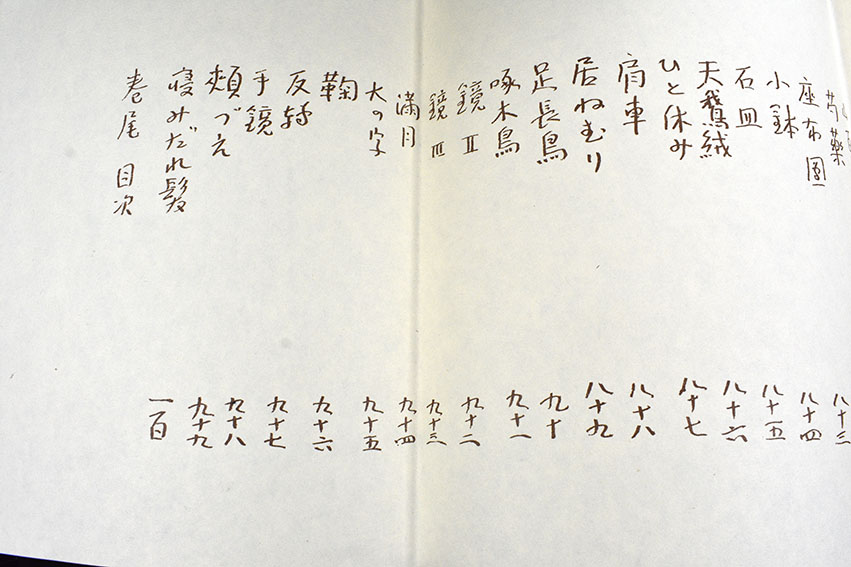 芍薬
座布團
小鉢
石皿
天鵞絨
ひと休み
肩車
居ねむり
足長鳥
啄木鳥
鏡 Ⅱ
鏡 Ⅲ
滿月
大の字
鞠
反転
手鏡
頬づえ
寝みだれ髪
巻尾 目次
八十三
八十四
八十五
八十六
八十七
八十八
八十九
九十
九十一
九十二
九十三
九十四
九十五
九十六
九十七
九十八
九十九
一百